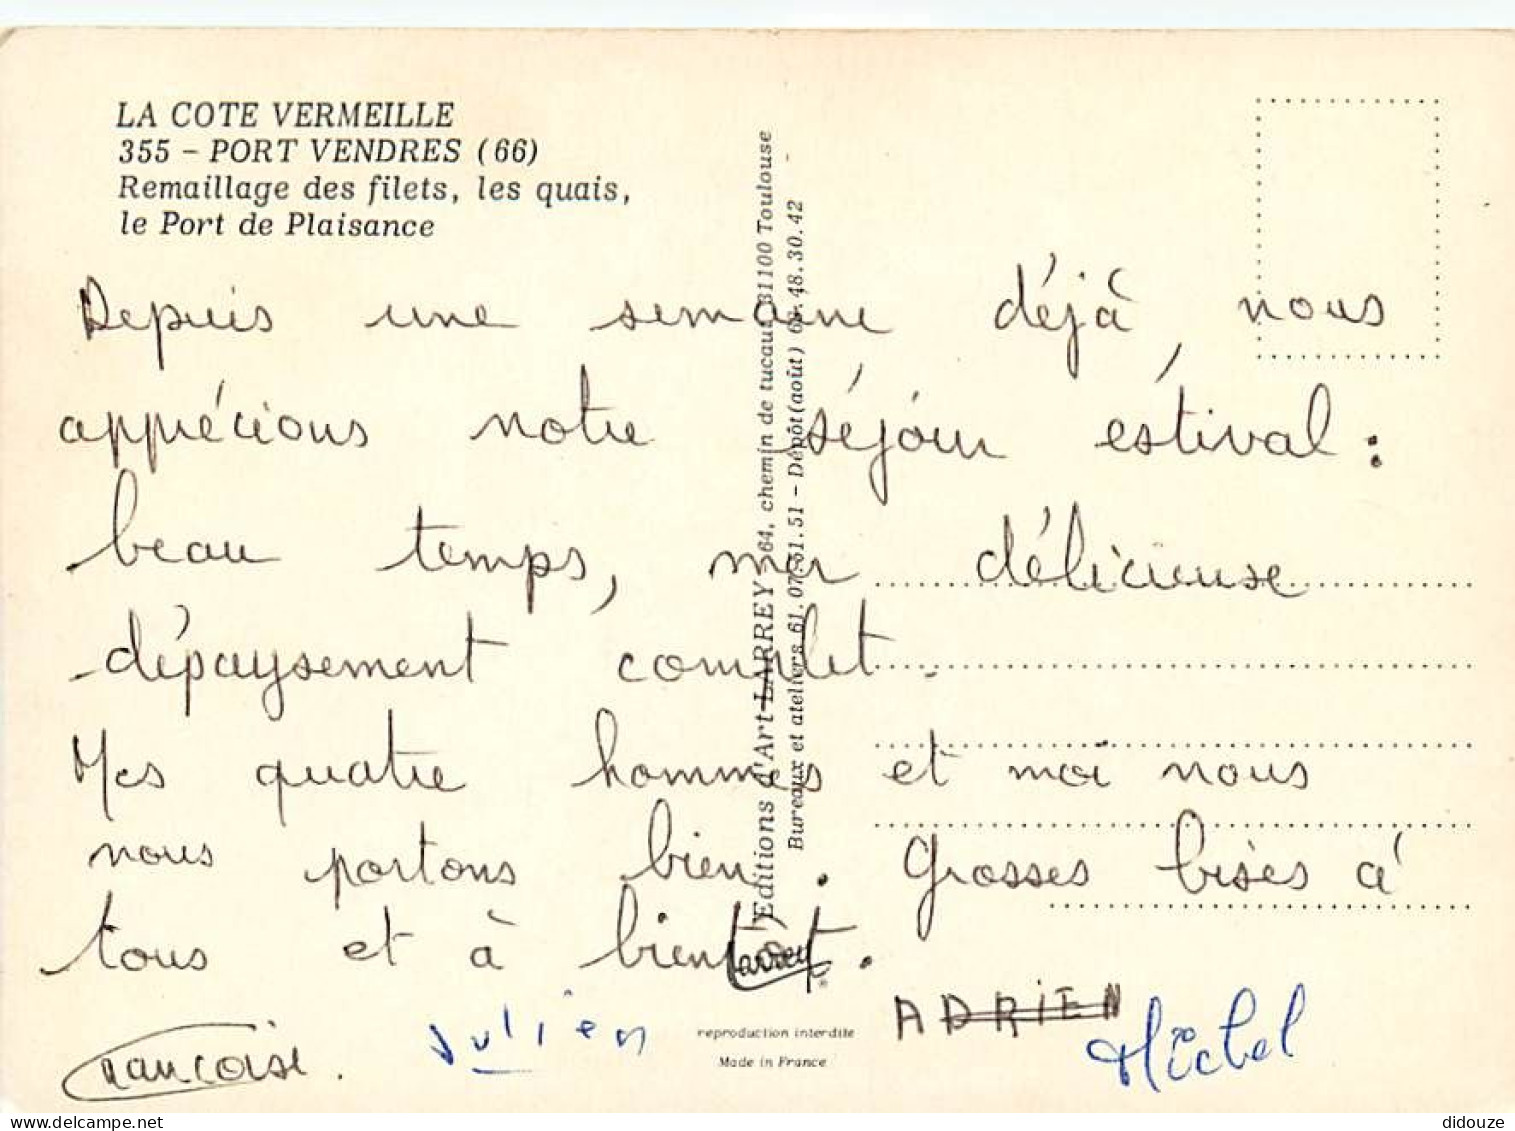 LA COTE VERMEILLE
355 - PORT VENDRES (66)
Remaillage des filets, les quais,
le Port de Plaisance
Depuis une semaine déjà, nous
apprécions notre séjour estival :
beau temps, mer délicieuse
dépaysement complet.
Mes quatre hommes et moi nous
nous portons bien. Grosses bises à
tous et à bientôt.
Françoise.
Julien
ADRIEN
Michel
Editions d'Art LARREY 64, chemin de tucaut 31100 Toulouse
Bureaux et ateliers 61.07.61.51 - Dépôt (août) 68.48.30.42
Larrey
reproduction interdite
Made in France
didouze